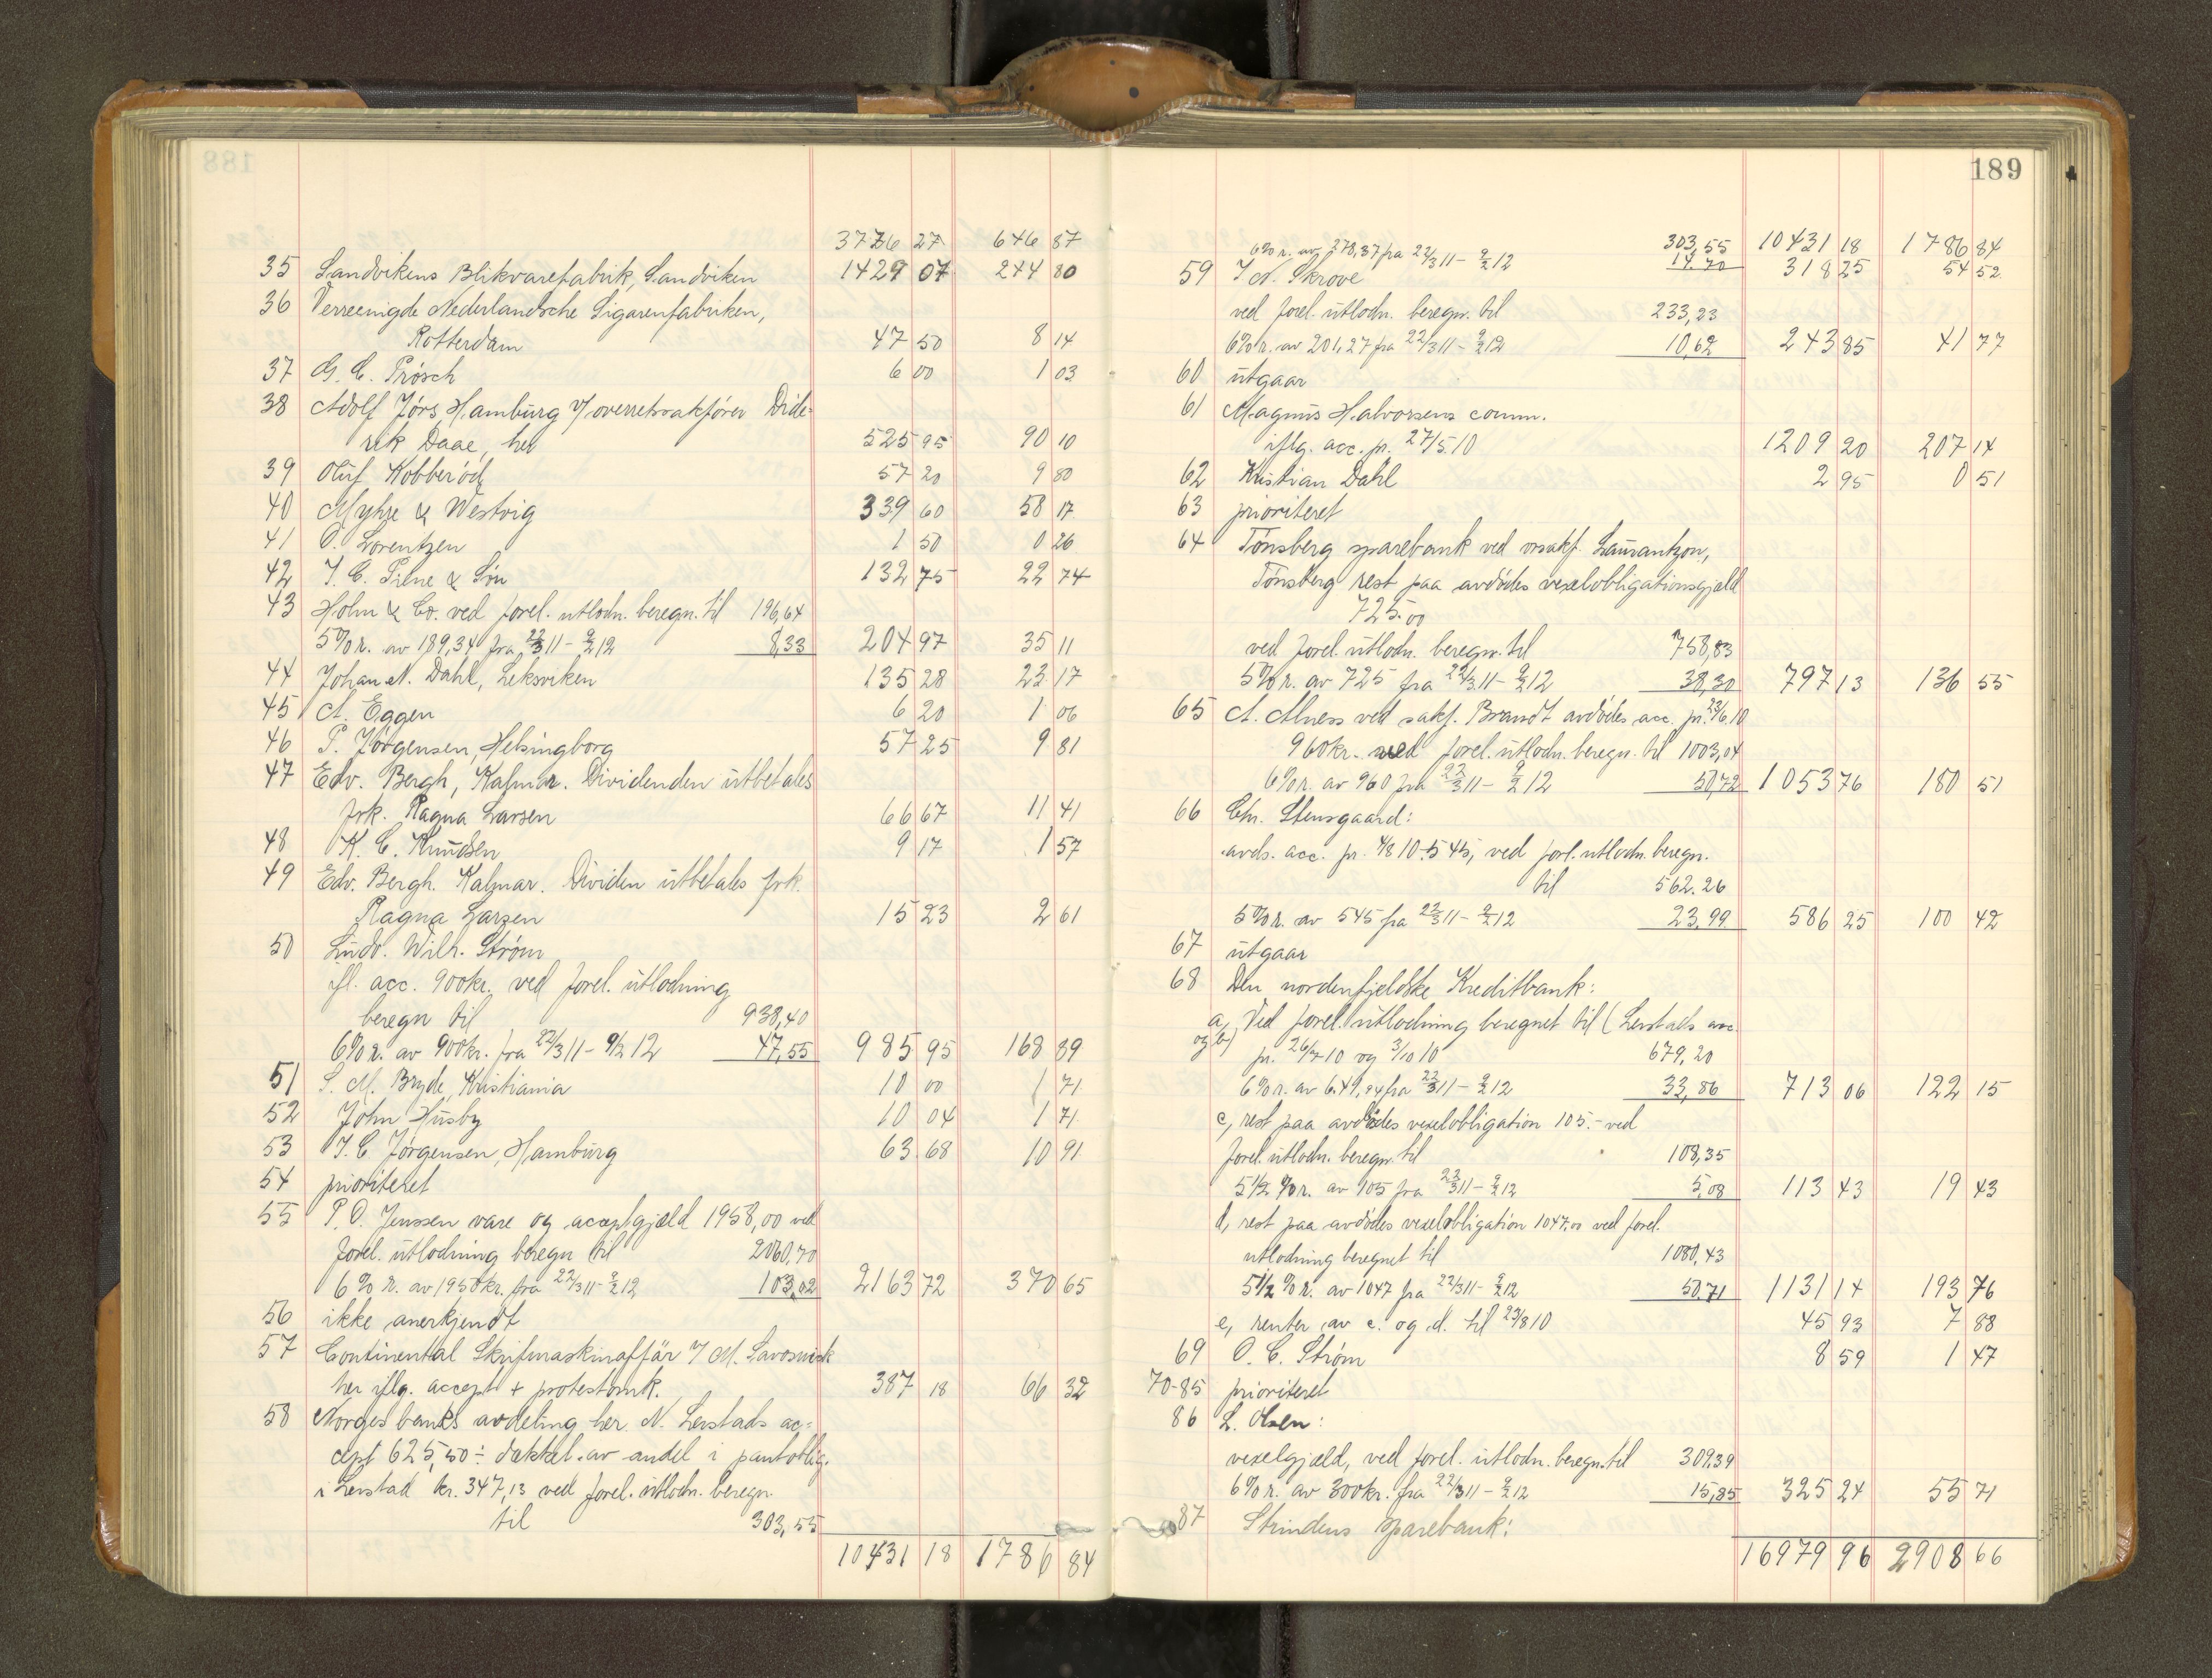 188
3776 27 646 87
35 Sandvikens Blikvarefabrik, Sandviken 1429 07 244 80
36 Verreenigde Nederlandsche Sigarenfabriken,
Rotterdam 47 50 8 14
37 G. C. Prösch 6 00 1 03
38 Adolf Jörs, Hamburg v/ overretssakförer Dide=
rik Daae, her 525 95 90 10
39 Oluf Kobberöd 57 20 9 80
40 Myhre & Westvig 339 60 58 17
41 O. Lorentzen 1 50 0 26
42 J. C. Piene & Sön 132 75 22 74
43 Holm & Co. ved forel. utlodn. beregn. til 196,64
5% r. av 189,34 fra 22/3 11 - 9/2 12 8,33 204 97 35 11
44 Johan N. Dahl, Leksviken 135 28 23 17
45 A. Eggen 6 20 1 06
46 P. Jörgensen, Helsingborg 57 25 9 81
47 Edv. Bergh, Kalmar. Dividenden utbetales
frk. Ragna Larsen 66 67 11 41
48 K. C. Knudsen 9 17 1 57
49 Edv. Bergh. Kalmar. Dividen utbetales frk.
Ragna Larsen 15 23 2 61
50 Ludv. Wilh. Ström
ifl. acc. 900kr. ved forel. utlodning
beregn til 938,40
6% r. av 900kr. fra 22/3 11 - 9/2 12 47,55 985 95 168 89
51 S. M. Bryde, Kristiania 10 00 1 71
52 John Husby 10 04 1 71
53 J. C. Jörgensen, Hamburg 63 68 10 91
54 prioriteret
55 P. O. Jenssen vare og acceptgjæld 1958,00 ved
forel. utlodning beregn til 2060,70
6% r. av 1950kr. fra 22/3 11 - 9/2 12 103,02 2163 72 370 65
56 ikke anerkjendt
57 Continental Skrifmaskinaffär v/ M.
her iflg. accept + protestomk. 387 18 66 32
58 Norges banks avdeling her. N. Leistads ac=
cept 625,50 ÷ dækket av andel i pantoblig.
i Leistad kr. 347,13 ved forel. utlodn. beregn.
til 303,55
10431 18 1786 84
189
303,55 10431 18 1786 84
6% r. av 278,37 fra 22/3 11 - 9/2 12 14.70 318 25 54 52
59 J. N. Skrove
ved forel. utlodn. beregn. til 233,23
6% r. av 201,27 fra 22/3 11 - 9/2 12 10,62 243 85 41 77
60 utgaar
61 Magnus Halvorsens comm.
iflg. acc. pr. 27/5 10 1209 20 207 14
62 Kristian Dahl 2 95 0 51
63 prioriteret
64 Tönsberg sparebank ved orsakf. Laurantzon,
Tönsberg rest paa avdödes vexelobligationsgjæld
725.00
ved forel. utlodn. beregn. til 758,83
5% r. av 725 fra 22/3 11 - 9/2 12 38,30 797 13 136 55
65 A. Alness ved sakf. Brandt avdödes acc. pr. 23/6 10
960kr. ved forel. utlodn. beregn. til 1003,04
6% r. av 960 fra 22/3 11 - 9/2 12 50,72 1053 76 180 51
66 Chr. Stensgaard:
avds. acc. pr. 4/8 10: 545, ved forl. utlodn. beregn.
til 562.26
5% r. av 545 fra 22/3 11 - 9/2 12 23,99 586 25 100 42
67 utgaar
68 Den nordenfjeldske Kreditbank:
a, Ved forel. utlodning beregnet til (Leistads acc.
og b) pr. 26/7 10 og 3/10 10 679,20
6% r. av 649,94 fra 22/3 11 - 9/2 12 33,86 713 06 122 15
c, rest paa avdödes vexelobligation 105.- ved
forel. utlodn. beregn. til 108,35
5 1/2 % r. av 105 fra 22/3 11 - 9/2 12 5,08 113 43 19 43
d, rest paa avdödes vexelobligation 1047.00 ved forel.
utlodning beregnet til 1080,43
5 1/2 % r. av 1047 fra 22/3 11 - 9/2 12 50,71 1131 14 193 76
e, renter av c. og d. til 23/8 10 45 93 7 88
69 O. C. Ström 8 59 1 47
70-85 prioriteret
86 L. Olsen:
vexelgjæld, ved forel. utlodn. beregn. til 309,39
6% r. av 300kr. fra 22/3 11 - 9/2 12 15,85 325 24 55 71
87 Strindens sparebank:
16979 96 2908 66